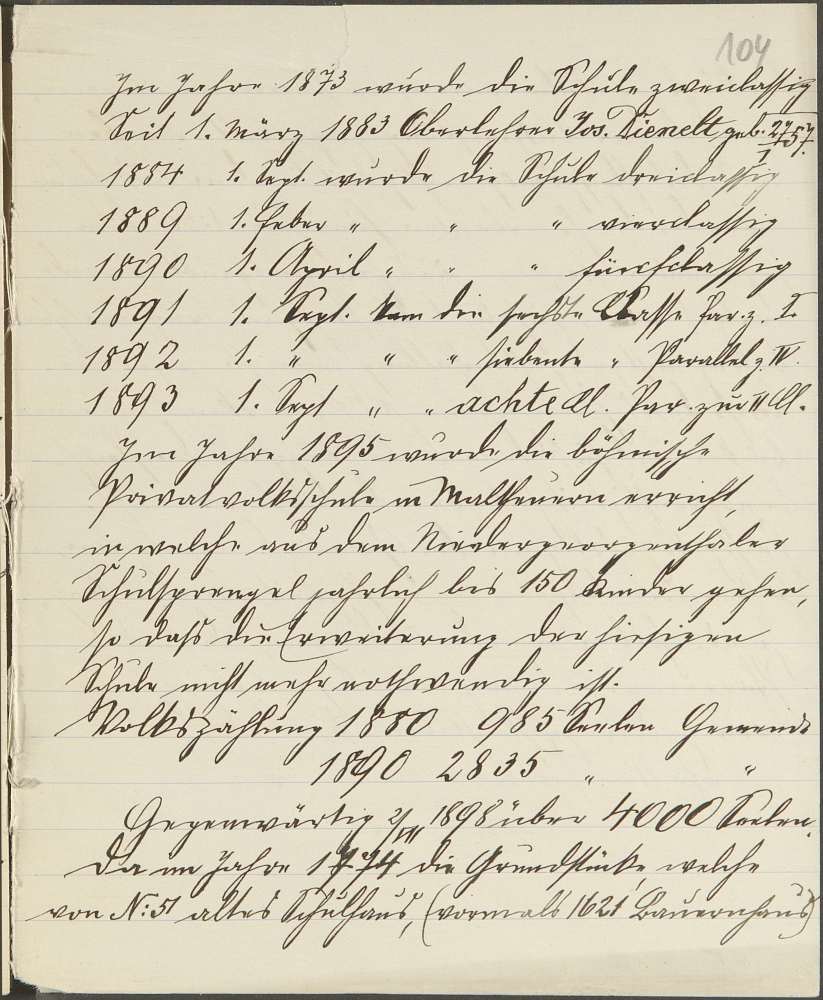 104
Im Jahre 1873 wurde die Schule zweiclassig
Seit 1. März 1883 Oberlehrer Jos. Dienelt, geb. 27/7 57.
1884 1. Sept. wurde die Schule dreiclassig
1889 1. Feber " " " vierclassig
1890 1. April " " " fünfclassig
1891 1. Sept. kam die sechste Classe Par. z. I.
1892 1. " " " siebente " Parallel z. IV.
1893 1. Sept " " achte Cl. Par. zur II Cl.
Im Jahre 1895 wurde die böhmische
Privatvolksschule in Maltheuern erricht,
in welche aus dem Niedergeorgenthaler
Schulsprengel jahrlich bis 150 Kinder gehen,
so daß die Erweiterung der hiesigen
Schule nicht mehr nothwendig ist.
Volkszählung 1880 985 Seelen Gemeinde
1890 2835 " "
Gegenwärtig 1898 über 4000 Seelen.
Da im Jahre 1774 die Grundstücke, welche
von N: 51 altes Schulhaus, (vormals 1621 Bauernhaus)